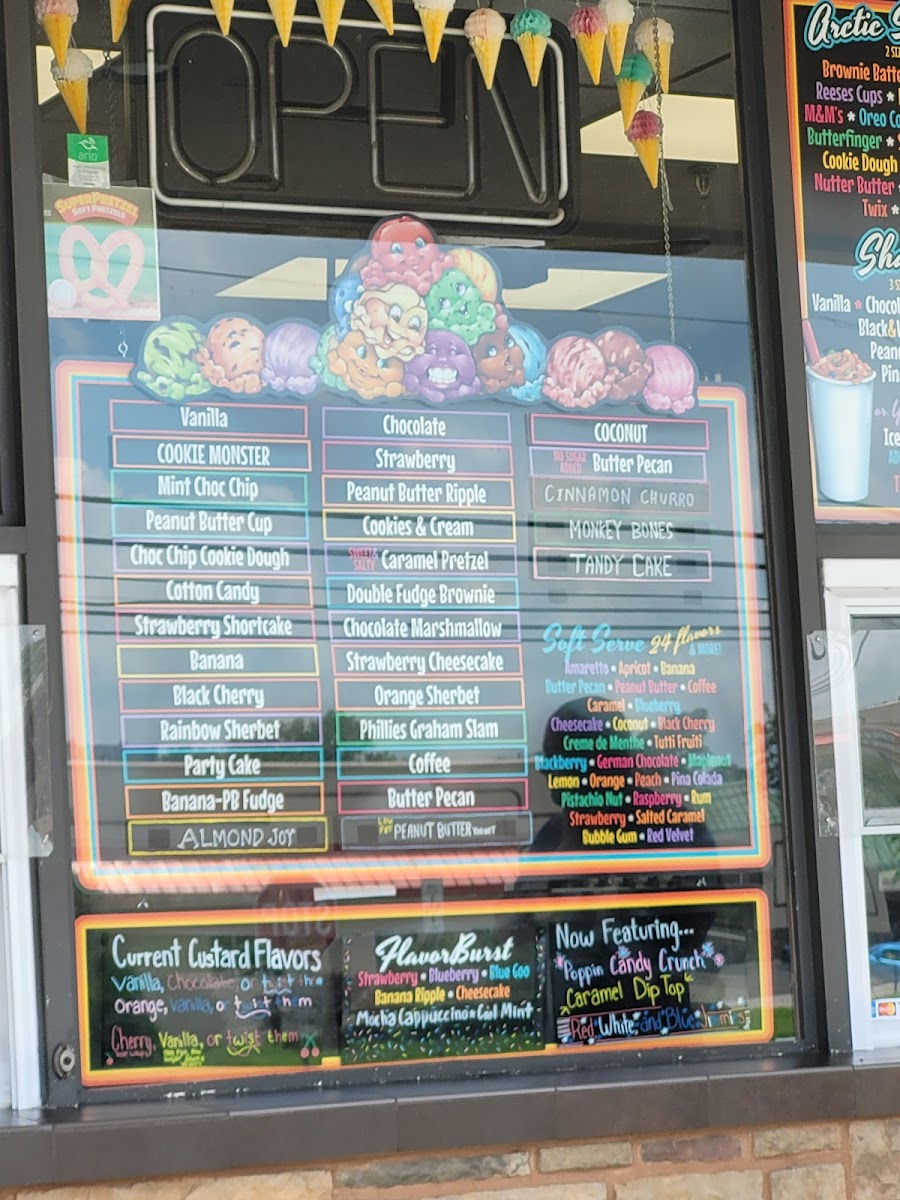 OPEN
arlo
SUPERPRETZEL
SOFT PRETZELS
Vanilla
COOKIE MONSTER
Mint Choc Chip
Peanut Butter Cup
Choc Chip Cookie Dough
Cotton Candy
Strawberry Shortcake
Banana
Black Cherry
Rainbow Sherbet
Party Cake
Banana-PB Fudge
ALMOND JOY
Chocolate
Strawberry
Peanut Butter Ripple
Cookies & Cream
SWEET & SALTY Caramel Pretzel
Double Fudge Brownie
Chocolate Marshmallow
Strawberry Cheesecake
Orange Sherbet
Phillies Graham Slam
Coffee
Butter Pecan
LOW FAT PEANUT BUTTER YOGURT
COCONUT
NO SUGAR ADDED Butter Pecan
CINNAMON CHURRO
MONKEY BONES
TANDY CAKE
Soft Serve 24 flavors & MORE!
Amaretto • Apricot • Banana
Butter Pecan • Peanut Butter • Coffee
Caramel • Blueberry
Cheesecake • Coconut • Black Cherry
Creme de Menthe • Tutti Fruiti
Blackberry • German Chocolate • Maplenut
Lemon • Orange • Peach • Pina Colada
Pistachio Nut • Raspberry • Rum
Strawberry • Salted Caramel
Bubble Gum • Red Velvet
Current Custard Flavors
Vanilla, Chocolate, or twist
Orange, Vanilla, or twist them
Cherry, Vanilla, or twist them
FlavorBurst
Strawberry • Blueberry • Blue Goo
Banana Ripple • Cheesecake
Mocha Cappuccino • Cool Mint
Now Featuring...
Poppin Candy Crunch
Caramel Dip Top
Red White and Blue Jimmies
Arctic
Brownie
Reeses Cups *
M&M's * Oreo
Butterfinger *
Cookie Dough
Nutter Butter
Twix *
Vanilla *